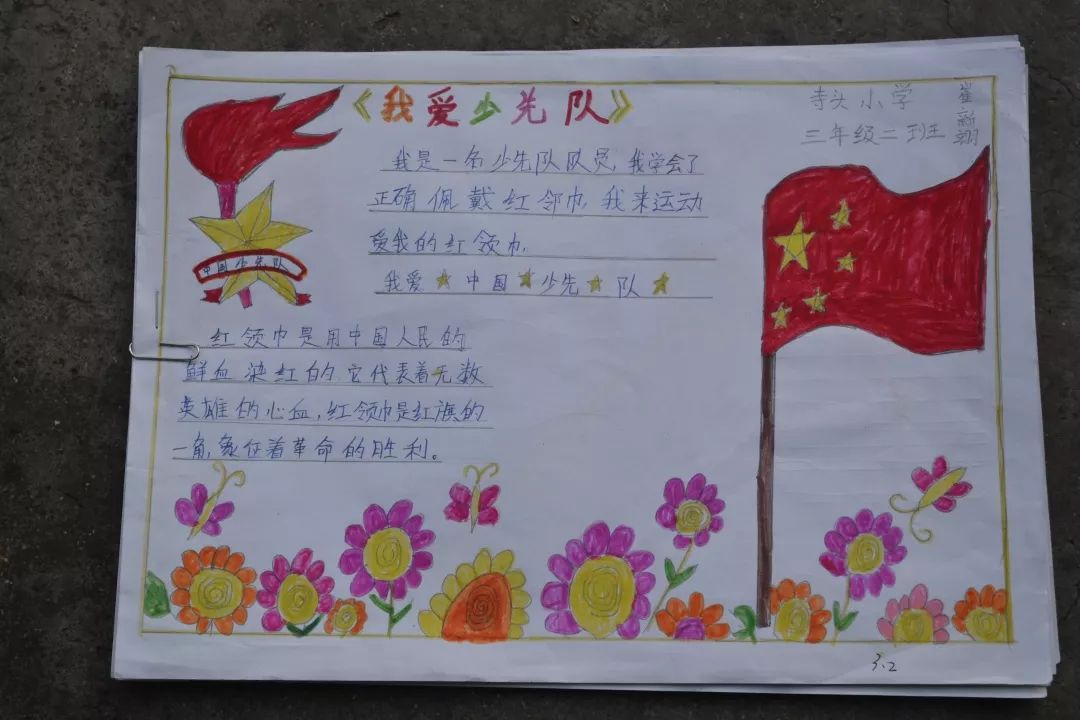 《我爱少先队》
寺头小学
三年级二班
崔新翊
我是一名少先队队员,我学会了
正确佩戴红邻巾,我来运动
爱我的红领巾,
我爱中国少先队
中国少先队
红领巾是用中国人民的
鲜血染红的,它代表着无数
英雄的心血,红领巾是红旗的
一角,象征着革命的胜利。
3.2